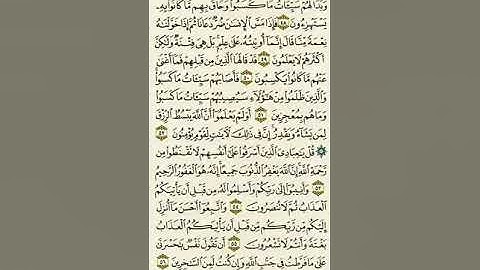 وَبَدَا لَهُمْ سَيِّـَٔاتُ مَا كَسَبُوا۟ وَحَاقَ بِهِم مَّا كَانُوا۟ بِهِۦ
يَسْتَهْزِءُونَ ٤٨ فَإِذَا مَسَّ ٱلْإِنسَٰنَ ضُرٌّ دَعَانَا ثُمَّ إِذَا خَوَّلْنَٰهُ
نِعْمَةً مِّنَّا قَالَ إِنَّمَآ أُوتِيتُهُۥ عَلَىٰ عِلْمٍۭ بَلْ هِىَ فِتْنَةٌ وَلَٰكِنَّ
أَكْثَرَهُمْ لَا يَعْلَمُونَ ٤٩ قَدْ قَالَهَا ٱلَّذِينَ مِن قَبْلِهِمْ فَمَآ أَغْنَىٰ
عَنْهُم مَّا كَانُوا۟ يَكْسِبُونَ ٥٠ فَأَصَابَهُمْ سَيِّـَٔاتُ مَا كَسَبُوا۟
وَٱلَّذِينَ ظَلَمُوا۟ مِنْ هَٰٓؤُلَآءِ سَيُصِيبُهُمْ سَيِّـَٔاتُ مَا كَسَبُوا۟
وَمَا هُم بِمُعْجِزِينَ ٥١ أَوَلَمْ يَعْلَمُوٓا۟ أَنَّ ٱللَّهَ يَبْسُطُ ٱلرِّزْقَ
لِمَن يَشَآءُ وَيَقْدِرُ إِنَّ فِى ذَٰلِكَ لَءَايَٰتٍ لِّقَوْمٍ يُؤْمِنُونَ ٥٢
۞ قُلْ يَٰعِبَادِىَ ٱلَّذِينَ أَسْرَفُوا۟ عَلَىٰٓ أَنفُسِهِمْ لَا تَقْنَطُوا۟ مِن
رَّحْمَةِ ٱللَّهِ إِنَّ ٱللَّهَ يَغْفِرُ ٱلذُّنُوبَ جَمِيعًا إِنَّهُۥ هُوَ ٱلْغَفُورُ ٱلرَّحِيمُ
٥٣ وَأَنِيبُوٓا۟ إِلَىٰ رَبِّكُمْ وَأَسْلِمُوا۟ لَهُۥ مِن قَبْلِ أَن يَأْتِيَكُمُ
ٱلْعَذَابُ ثُمَّ لَا تُنصَرُونَ ٥٤ وَٱتَّبِعُوٓا۟ أَحْسَنَ مَآ أُنزِلَ
إِلَيْكُم مِّن رَّبِّكُم مِّن قَبْلِ أَن يَأْتِيَكُمُ ٱلْعَذَابُ
بَغْتَةً وَأَنتُمْ لَا تَشْعُرُونَ ٥٥ أَن تَقُولَ نَفْسٌ يَٰحَسْرَتَىٰ
عَلَىٰ مَا فَرَّطتُ فِى جَنۢبِ ٱللَّهِ وَإِن كُنتُ لَمِنَ ٱلسَّٰخِرِينَ ٥٦